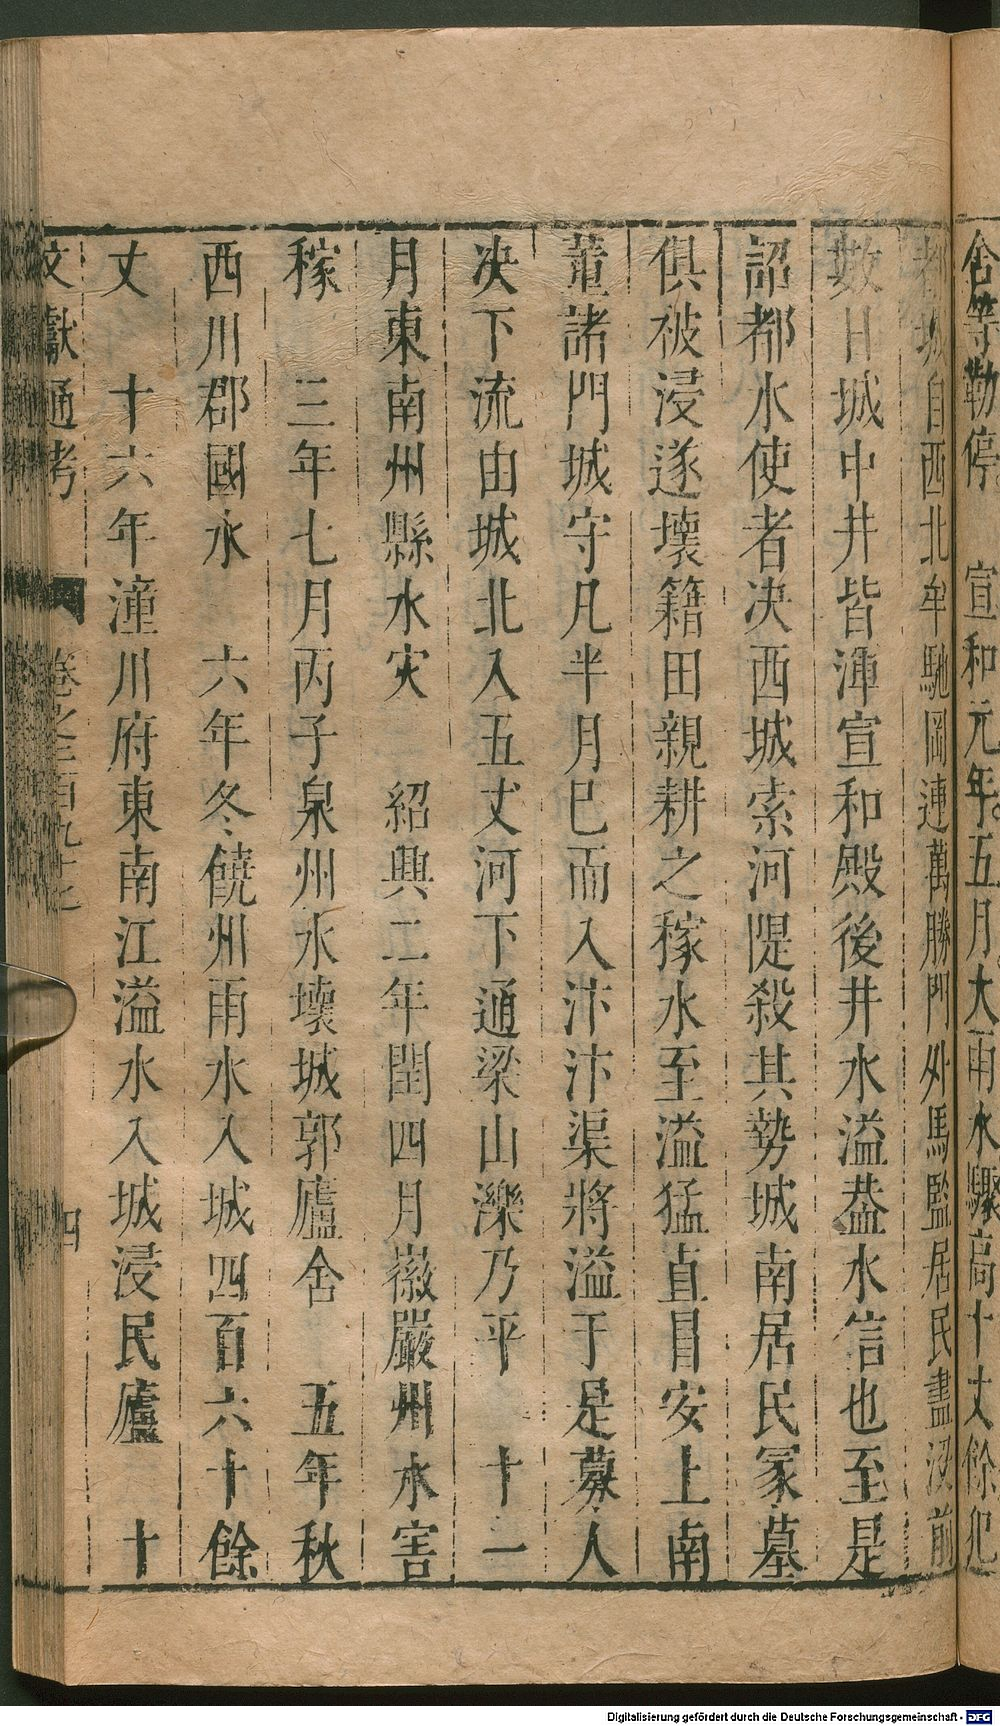 舍等勒停　宣和元年五月大雨水驟高十丈餘犯
都城自西北牟馳岡連萬勝門外馬監居民盡没前
數日城中井皆渾宣和殿後井水溢葢水信也至是
詔都水使者决西城索河隄殺其勢城南居民冢墓
俱被浸遂壞籍田親耕之稼水至溢猛直冒安上南
薰諸門城守凡半月巳而入汴汴渠將溢于是募人
决下流由城北入五丈河下通梁山濼乃平　十一
月東南州縣水灾　紹興二年閏四月徽嚴州水害
稼　三年七月丙子泉州水壞城郭廬舍　五年秋
西川郡國水　六年冬饒州雨水入城四百六十餘
丈　十六年潼川府東南江溢水入城浸民廬　十
文獻通考　卷之二百九十七　四
Digitalisierung gefördert durch die Deutsche Forschungsgemeinschaft - DFG